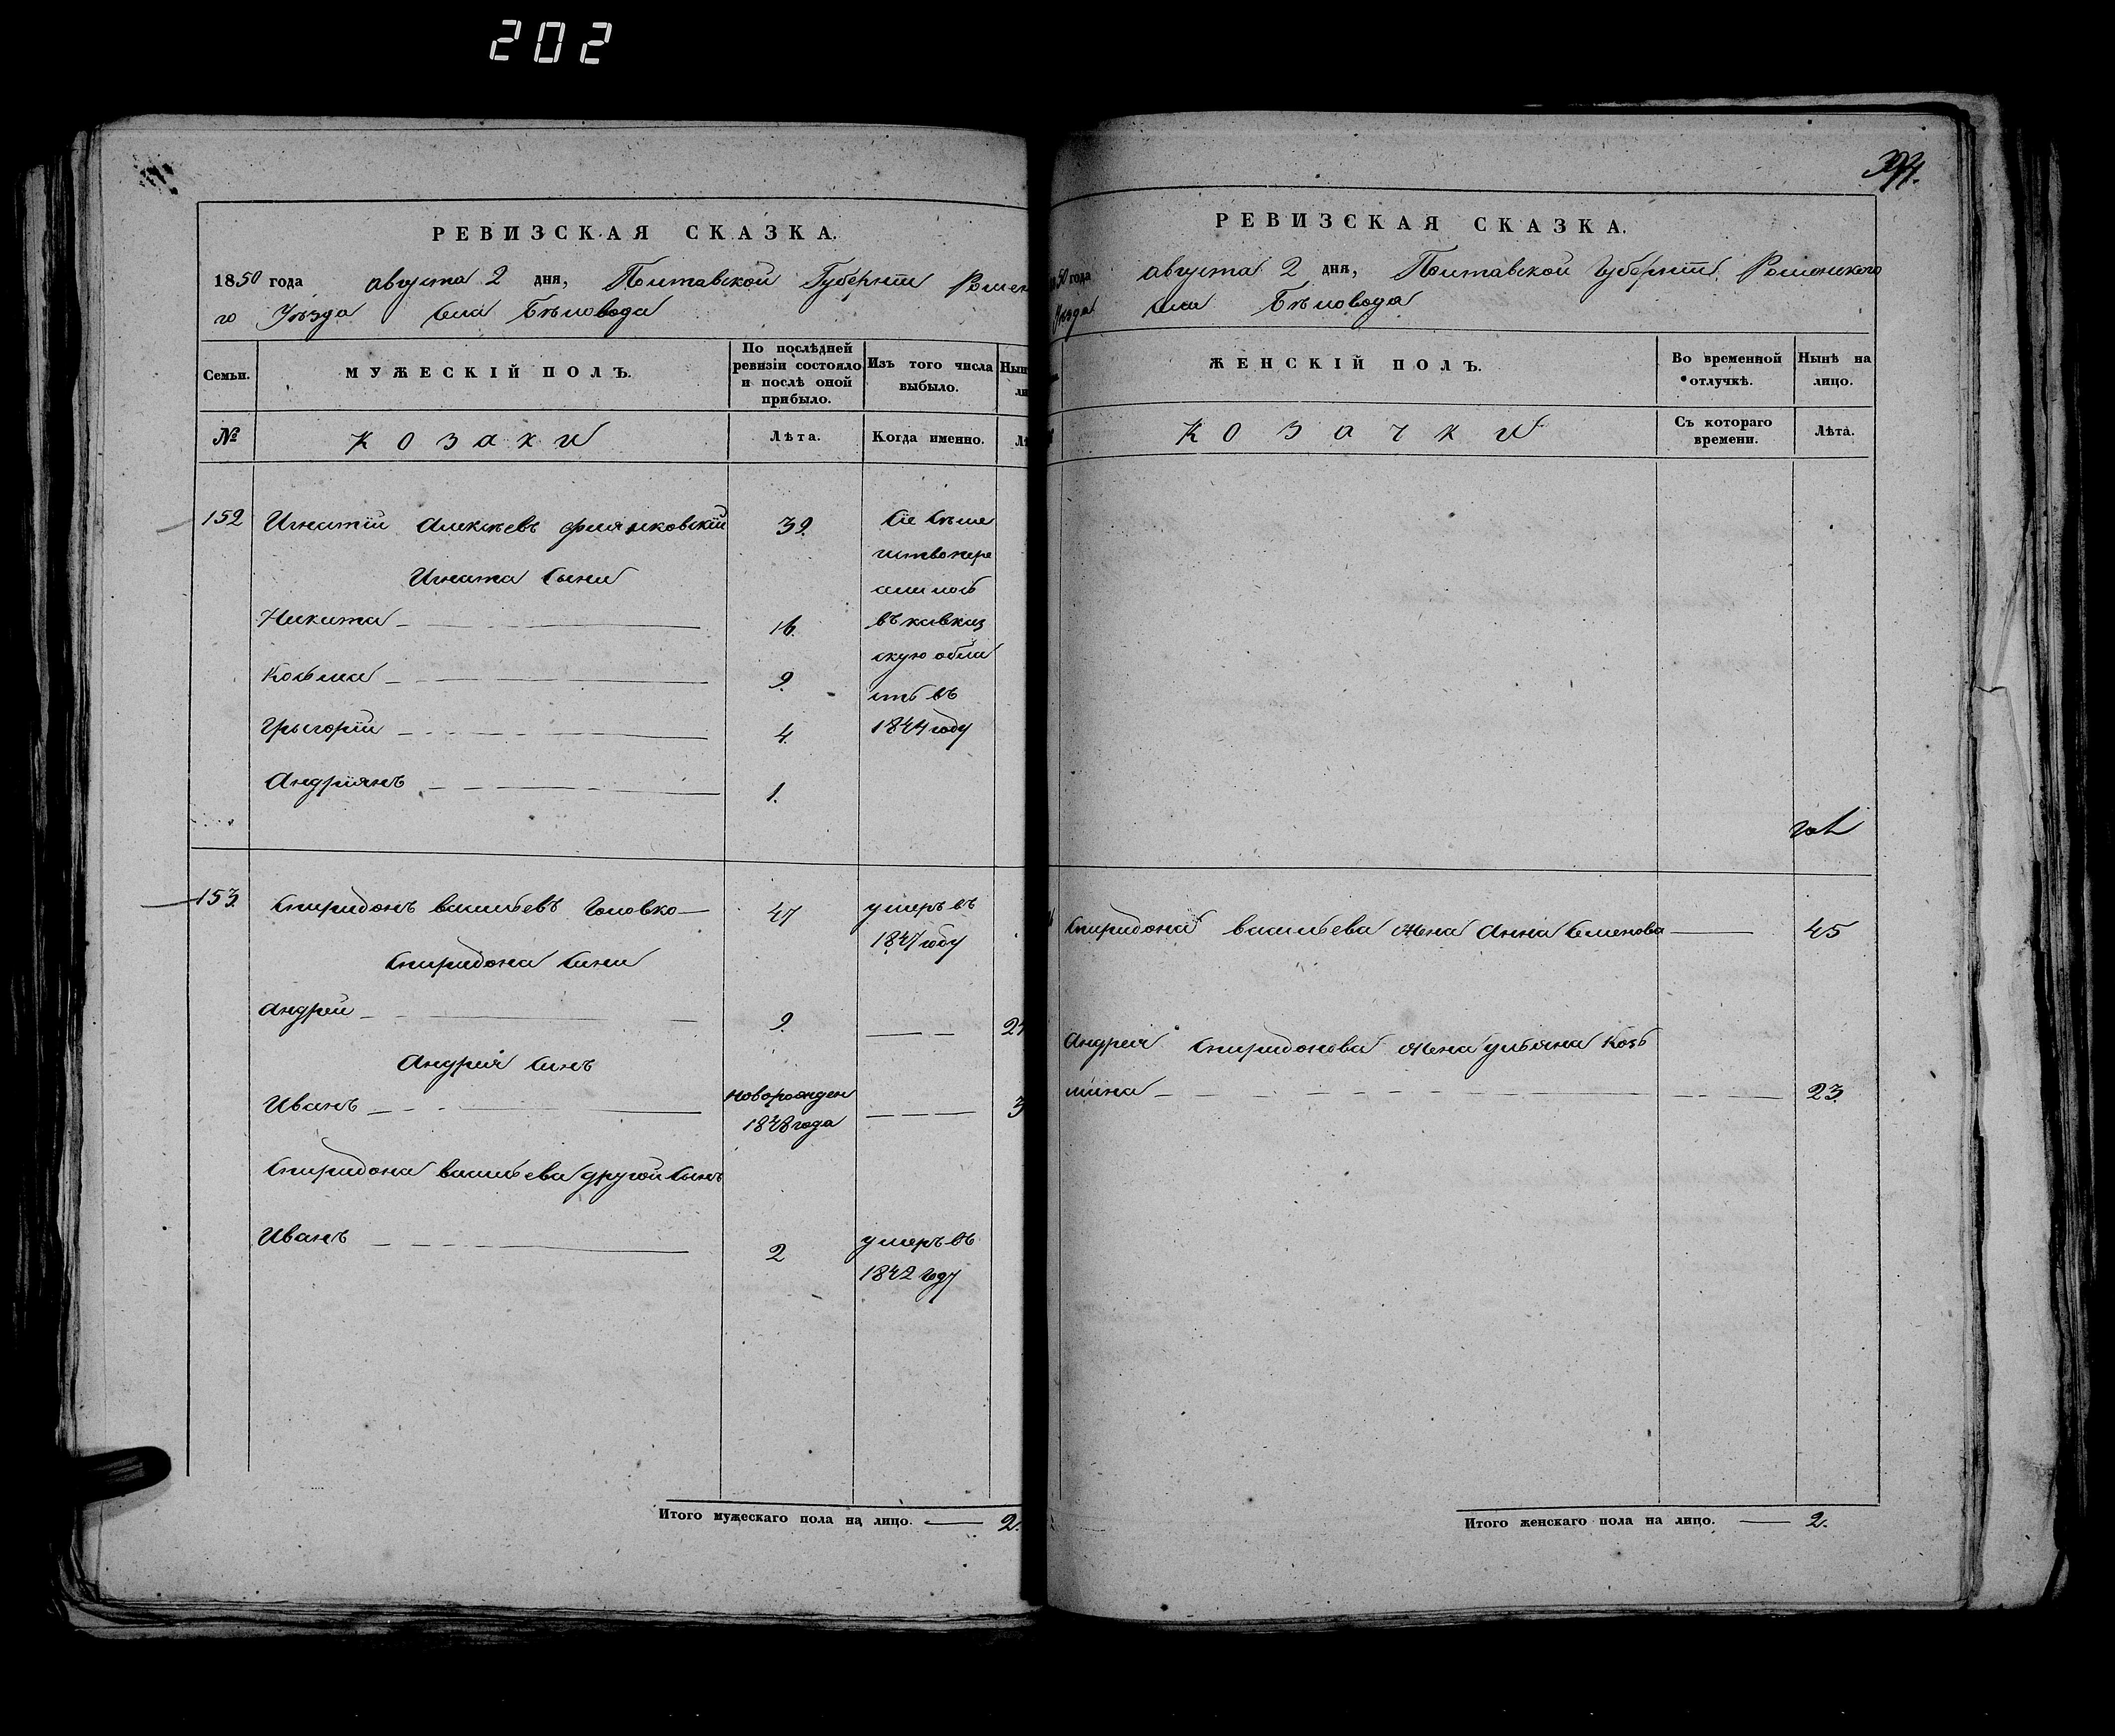 202
РЕВИЗСКАЯ СКАЗКА.
1850 года августа 2 дня, Полтавской Губернiи Ромен
го Уѣзда села Бѣловода
Семьи.
МУЖЕСКІЙ ПОЛЪ.
По послѣдней ревизіи состояло и послѣ оной прибыло.
Изъ того числа выбыло.
№
Козаки
Лѣта.
Когда именно.
152 Игнатій Алексѣевъ 39. Сіе Сѣме
Игната сыны йство пере
селилось
Никита 16. въ кавказ
скую обла
Козьма 9. сть въ
Григорій 4. 1844 году
Андріянъ 1.
153. Спиридонъ васильевъ Головко 47 умеръ въ
1847 году
Спиридона сыни
Андрей 9. 21
Андрея Синъ
Иванъ новорожден 3
1848 года
Спиридона васильева другой Сынъ
Иванъ 2 умеръ въ
1842 году
Итого мужескаго пола на лицо. 2.
РЕВИЗСКАЯ СКАЗКА.
50 года августа 2 дня, Полтавской Губерніи Роменского
Уѣзда села Бѣловода
ЖЕНСКІЙ ПОЛЪ.
Во временной отлучкѣ.
Нынѣ на лицо.
Козачки
Съ котораго времени.
Лѣта.
Спиридона васильева жена Анна Семенова 45
Андрея Спиридонова жена ульяна Козь
мина 23.
Итого женскаго пола на лицо. 2.